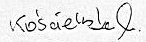 Kościelska J.